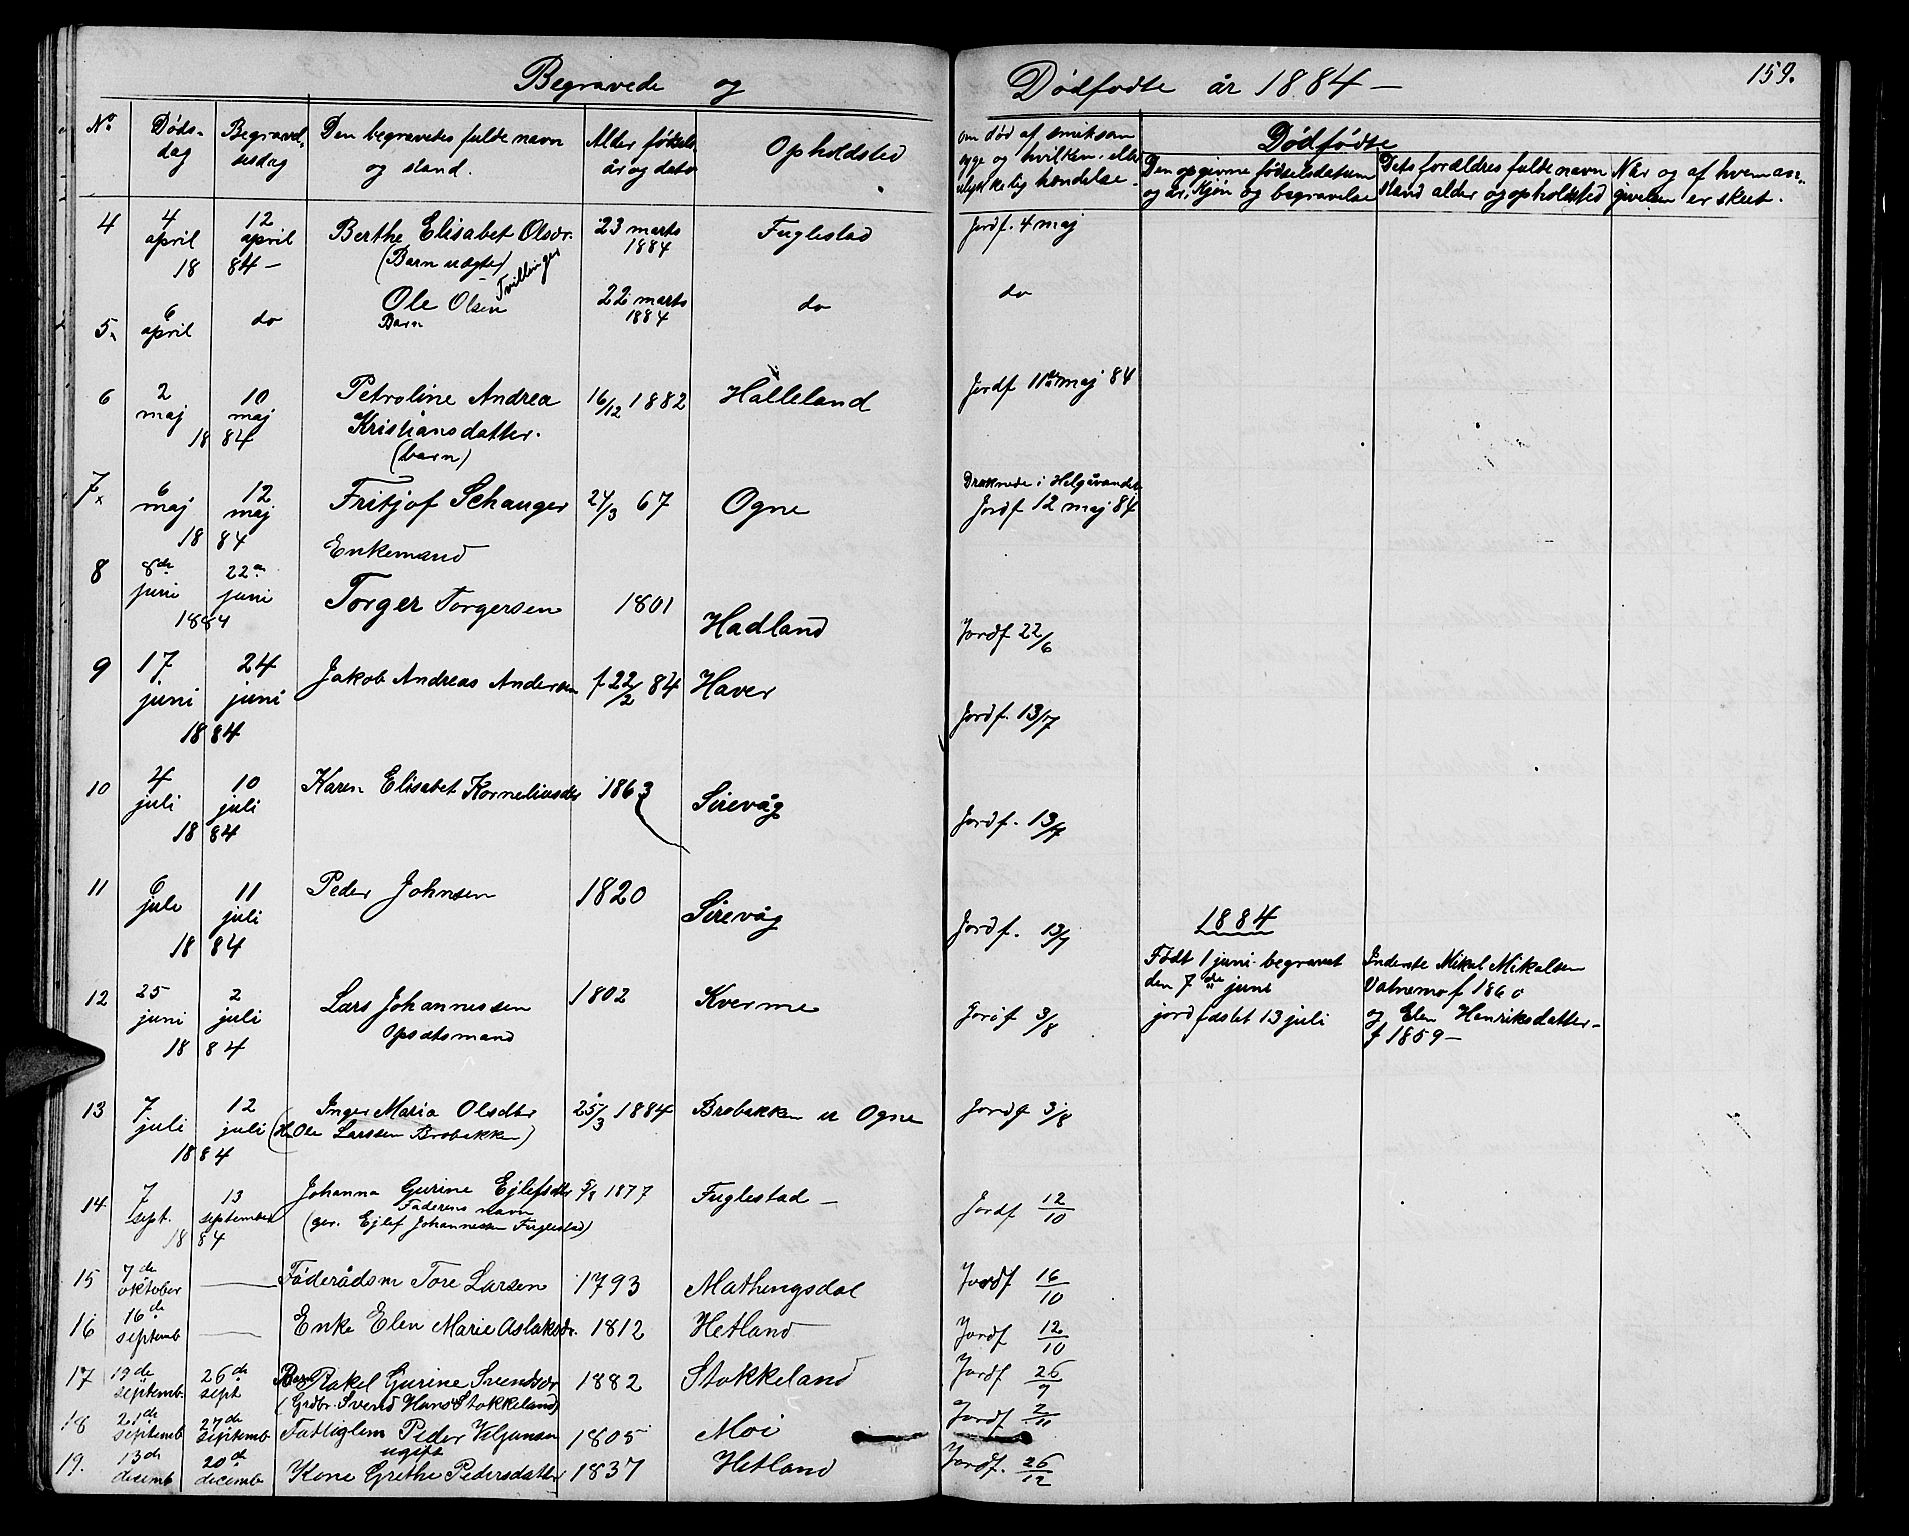 Begravede og Dødfødte år 1884 —
159.
No Døds- dag Begravel- sesdag Den begravedes fulde navn og stand. Alder fødsels år og dato Opholdsted om død af smitsom syge og hvilken eller ulykkelig hændelse.
Dødfødte
Den opgivne fødselsdatum og år, kjøn og begravelse Dets forældres fulde navn stand alder og opholdsted Når og af hvem an- givelsen er skeet.
4 4 april 12 april 1884 — Berthe Elisabet Olsdr. 23 marts 1884 Fuglestad Jordf. 4 maj
(Barn uægte) Tvillinger
5. 6 april do Ole Olsen 22 marts 1884 do do
Barn
6 2 maj 10 maj 1884 Petroline Andrea 16/12 1882 Hålleland Jordf 11te maj 84
Kristiansdatter.
(barn)
7 6 maj 12 maj 1884 Fritjof Schanger 24/3 67 Ogne Druknede i Helgåvandet
Jordf 12 maj 84
Enkemand
8 8de juni 22 juni 1884 Torger Torgersen 1801 Hadland Jordf 22/6
9 17 juni 24 juni 1884 Jakob Andreas Andersen f 22/2 84 Haver Jordf. 13/7
10 4 juli 10 juli 1884 Karen Elisabet Korneliusdtr 1863 Sirevåg Jordf. 13/7
11 6 juli 11 juli 1884 Peder Johnsen 1820 Sirevåg Jordf. 13/7
1884
Født 1 juni begravet Inderste Mikal Mikalsen
den 7de juni Vatnemo f 1860
jordfæstet 13 juli og Elen Henriksdatter —
f 1859 —
12 25 juni 2 juli 1884 Lars Johannessen 1802 Kverme Jordf 3/8
13 7 juli 12 juli 1884 Inger Maria Olsdtr 25/3 1884 Brobakken Ogne Jordf 3/8
Ole Larssen Brobakken)
14 7 sept. 13 september 1884 Johanna Gurine Ejlefsdtr 5/8 1877 Fuglestad — Jordf 12/10
Faderens navn
(gr. Ejlef Johannessen Fuglestad)
15 7de oktober — Føderådsm Tore Larsen 1793 Mathingsdal Jordf 16/10
16 16de septemb — Enke Elen Marie Aslaksdr. 1812 Hetland Jordf 12/10
17 19de septemb. 26de sept Barn Rakel Gurine Svendsdr 1882 Stokkeland Jordf 26/9
(Grdbr. Svend Hans Stokkeland)
18 21de septemb 27de septemb Fattiglem Peder 1805 Moi Jordf 2/11
ugift
19. 13de desemb 20de decemb Kone Grethe Pedersdatter 1837 Hetland Jordf. 26/12